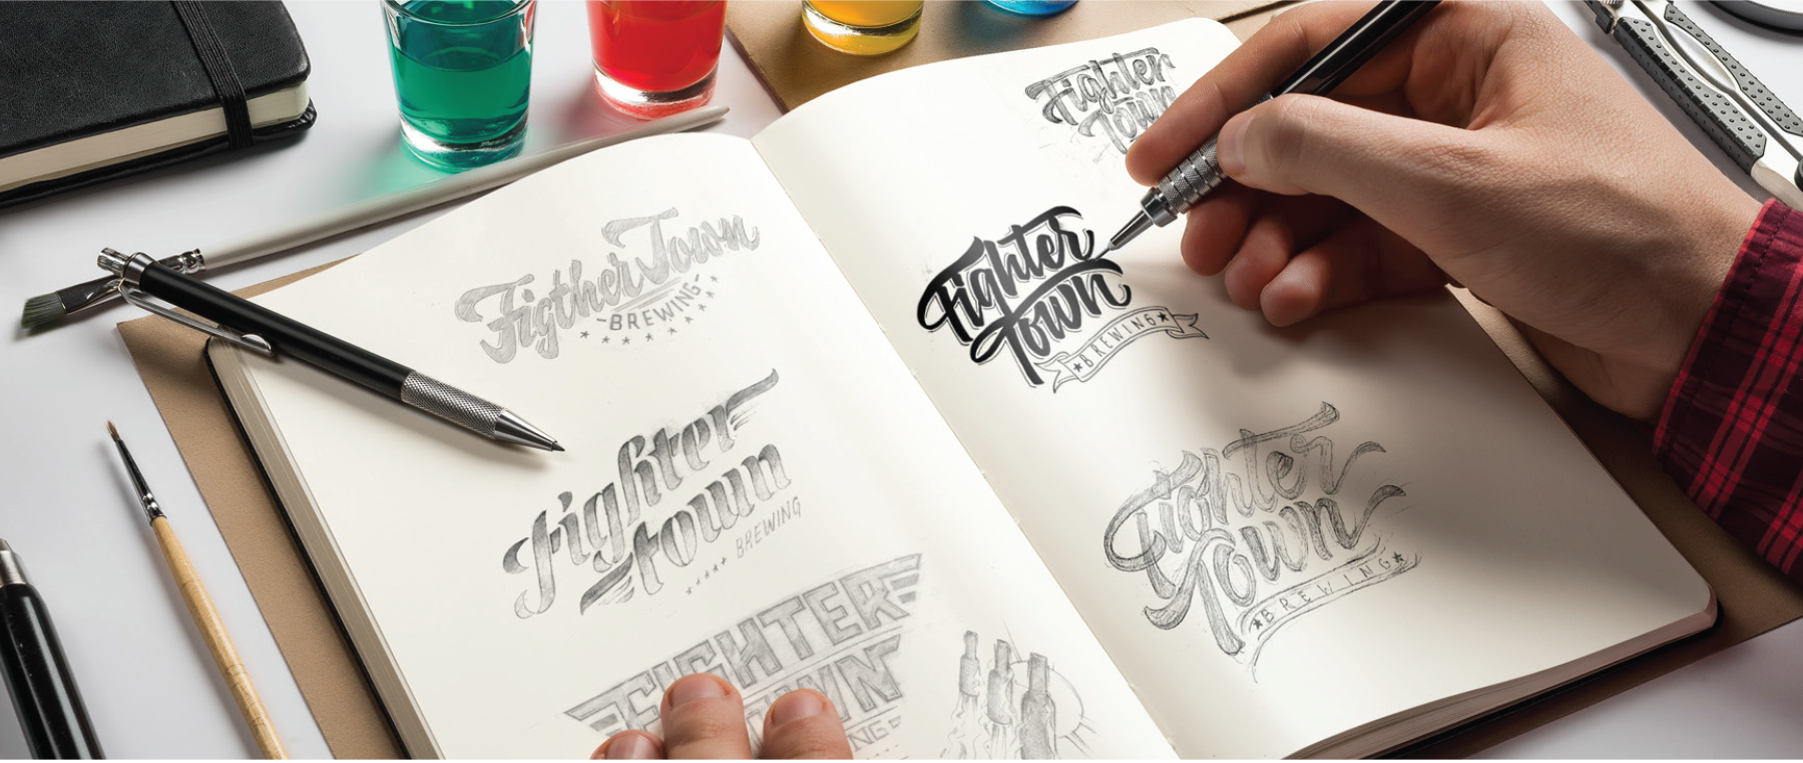 Figther Town
BREWING
Fighter
town
BREWING
FIGHTER
TOWN
Fighter
Town
Fighter
Town
BREWING
Fighter
Town
BREWING